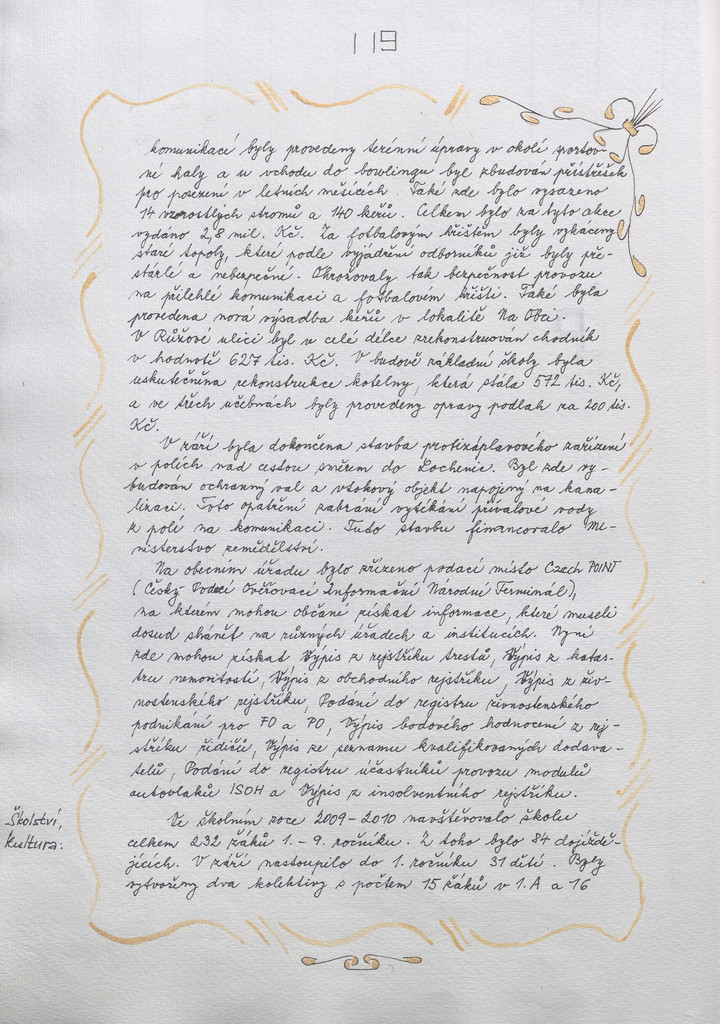 119
komunikací byly provedeny terénní úpravy v okolí sportov-
ní haly a u vchodu do bowlingu byl zbudován přístřešek
pro posezení v letních měsících. Také zde bylo vysazeno
14 vzrostlých stromů a 140 keřů. Celkem bylo za tyto akce
vydáno 2,8 mil. Kč. Za fotbalovým hřištěm byly vykáceny
staré topoly, které podle vyjádření odborníků již byly pře-
stárlé a nebezpečné. Ohrožovaly tak bezpečnost provozu
na přilehlé komunikaci a fotbalovém hřišti. Také byla
provedena nová výsadba keřů v lokalitě Na Obci.
V Růžové ulici byl v celé délce zrekonstruován chodník
v hodnotě 627 tis. Kč. V budově základní školy byla
uskutečněna rekonstrukce kotelny, která stála 572 tis. Kč,
a ve třech učebnách byly provedeny opravy podlah za 200 tis.
Kč.
V září byla dokončena stavba protizáplavového zařízení
v polích nad cestou směrem do Lochenic. Byl zde vy-
budován ochranný val a vtokový objekt napojený na kana-
lizaci. Toto opatření zabrání vytékání přívalové vody
z polí na komunikaci. Tuto stavbu financovalo Mi-
nisterstvo zemědělství.
Na obecním úřadu bylo zřízeno podací místo Czech POINT
(Český Podací Ověřovací Informační Národní Terminál),
na kterém mohou občané získat informace, které museli
dosud shánět na různých úřadech a institucích. Nyní
zde mohou získat Výpis z rejstříku trestů, Výpis z katas-
tru nemovitostí, Výpis z obchodního rejstříku, Výpis z živ-
nostenského rejstříku, Podání do registru živnostenského
podnikání pro FO a PO, Výpis bodového hodnocení z rej-
stříku řidičů, Výpis ze seznamu kvalifikovaných dodava-
telů, Podání do registru účastníků provozu modulů
autovlaků ISOH a Výpis z insolvenčního rejstříku.
Školství,
Kultura:
Ve školním roce 2009-2010 navštěvovalo školu
celkem 232 žáků 1. - 9. ročníku. Z toho bylo 84 dojíždě-
jících. V září nastoupilo do 1. ročníku 31 dětí. Byly
vytvořeny dva kolektivy s počtem 15 žáků v 1.A a 16